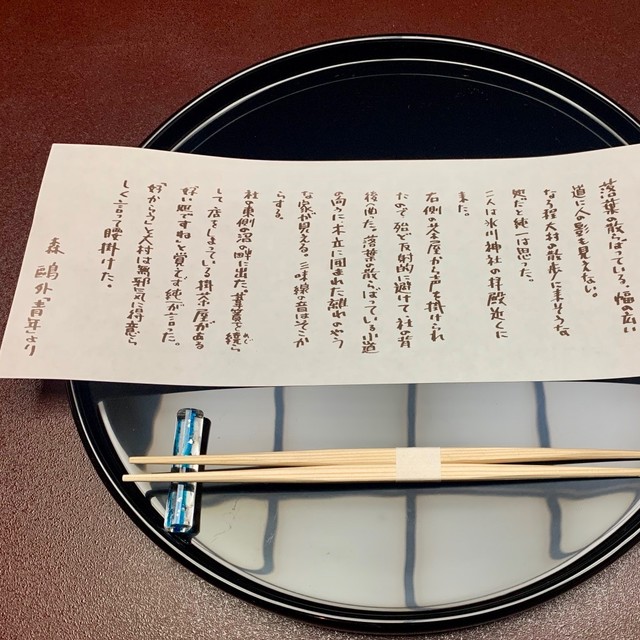 落葉の散らばっている、幅の広い
道に人の影も見えない。
なる程大村の散歩に来そうな
処だと純一は思った。
二人は氷川神社の拝殿近くに
来た。
右側の茶屋から声を掛けられ
たので、殆ど反射的に避けて社の背
後へ出た。落葉の散らばっている小道
の向うに木立に囲まれた離れのよう
な家が見える。三味線の音はそこか
らする。
社の東側の沼の畔に出た。葦簀を続ら
して店をしまっている掛茶屋がある
「好い処ですね」と覚えず純一が言った。
「好かろう」と大村は無邪気に得意ら
しく言って腰掛けた。
森 鴎外「青年」より